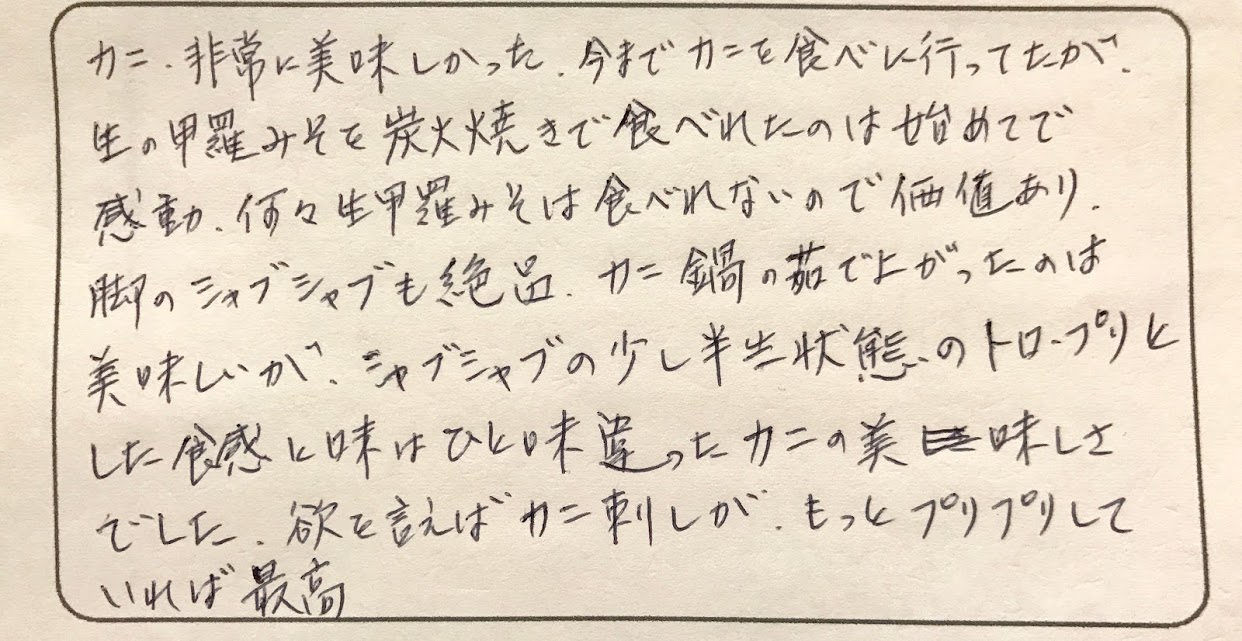 カニ、非常に美味しかった。今までカニを食べに行ってたが、
生の甲羅みそを炭火焼きで食べれたのは始めてで
感動。何々生甲羅みそは食べれないので価値あり。
脚のシャブシャブも絶品。カニ鍋の茹で上がったのは
美味しいが、シャブシャブの少し半生状態のトロ、プリと
した食感と味はひと味違ったカニの美味しさ
でした。欲を言えばカニ刺しが、もっとプリプリして
いれば最高